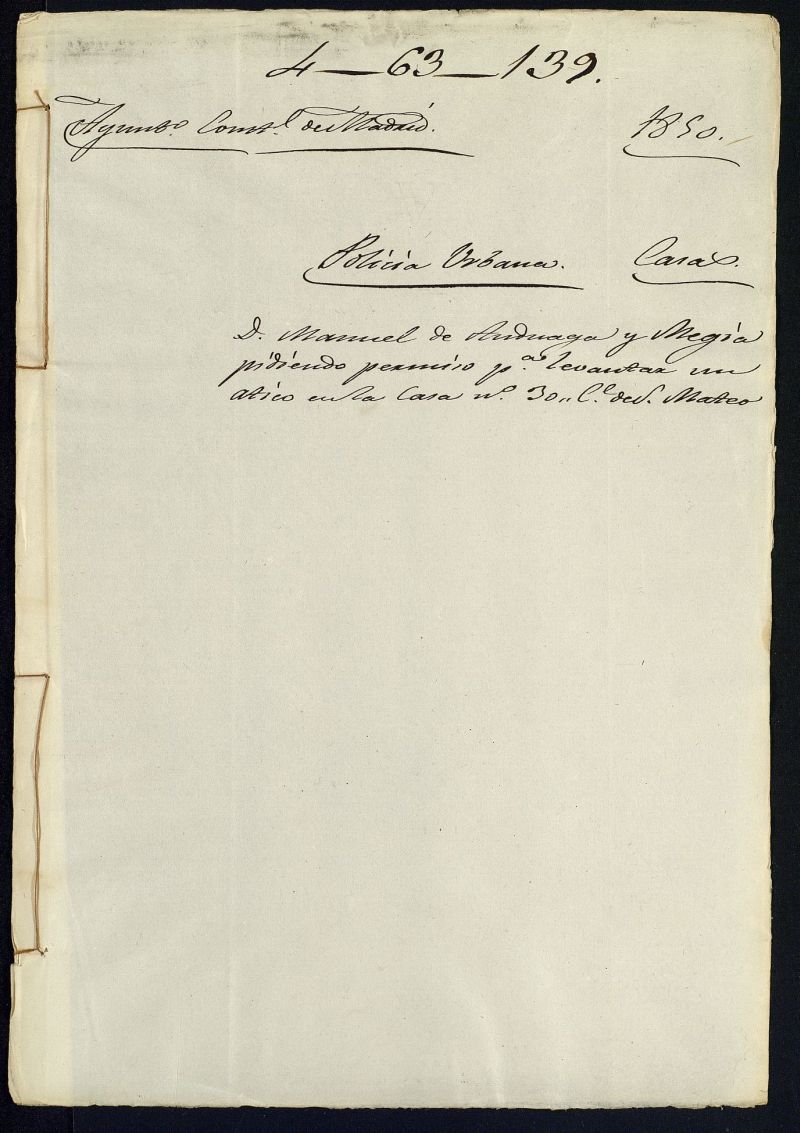 4—63—139.
Ayunto. Constl. de Madrid. 1850.
Policia Urbana. Casas.
D. Manuel de Anduaga y Megia
pidiendo permiso pa. levantar un
atico en la Casa nº. 30,, Ce. de S. Mateo